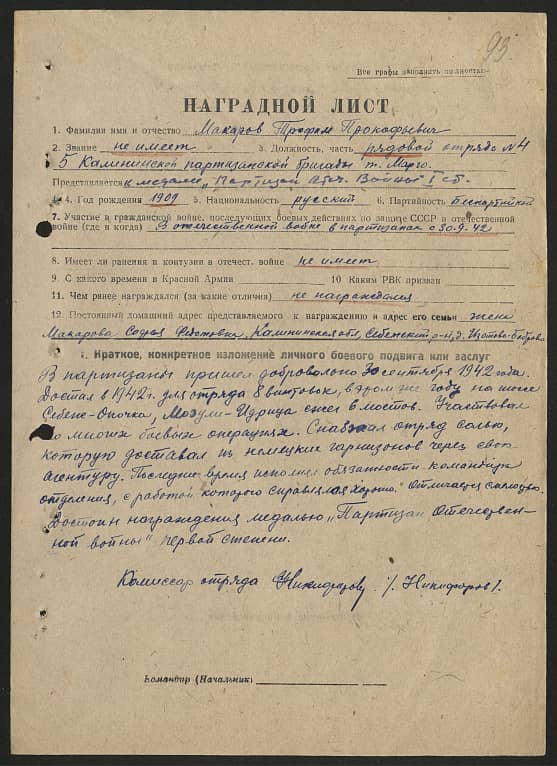 93.
Все графы заполнять полностью
НАГРАДНОЙ ЛИСТ
1. Фамилия имя и отчество Макаров Трофим Прокофьевич
2. Звание не имеет 3. Должность, часть рядовой отряда №4
5 Калининской партизанской бригады т. Марго.
Представляется к медали „Партизан Отеч. Войны" I ст.
4. Год рождения 1909 5. Национальность русский 6. Партийность Беспартийный
7. Участие в гражданской войне, последующих боевых действиях по защите СССР и отечественной
войне (где и когда) В отечественной войне в партизанах с 30.9.42
8. Имеет ли ранения и контузии в отечест. войне не имеет
9. С какого времени в Красной Армии 10 Каким РВК призван
11. Чем ранее награждался (за какие отличия) не награждался
12. Постоянный домашний адрес представляемого к награждению и адрес его семьи жена
Макарова Софья Калининская обл, Себежский р-н, д.
1. Краткое, конкретное изложение личного боевого подвига или заслуг
В партизаны пришел добровольно 30 сентября 1942 года.
Достал в 1942г. для отряда 8 винтовок, в этом же году на шоссе
Себеж-Опочка, Мозули-Идрица сжег 6 мостов. Участвовал
во многих боевых операциях. Снабжал отряд солью,
которую доставал из немецких гарнизонов через свою
агентуру. Последнее время исполнял обязанности командира
отделения, с работой которого справлялся хорошо. Отличался смелостью.
Достоин награждения медалью „Партизан Отечествен-
ной войны" первой степени.
Комиссар отряда Никифоров /Никифоров/.
Командир (Начальник)